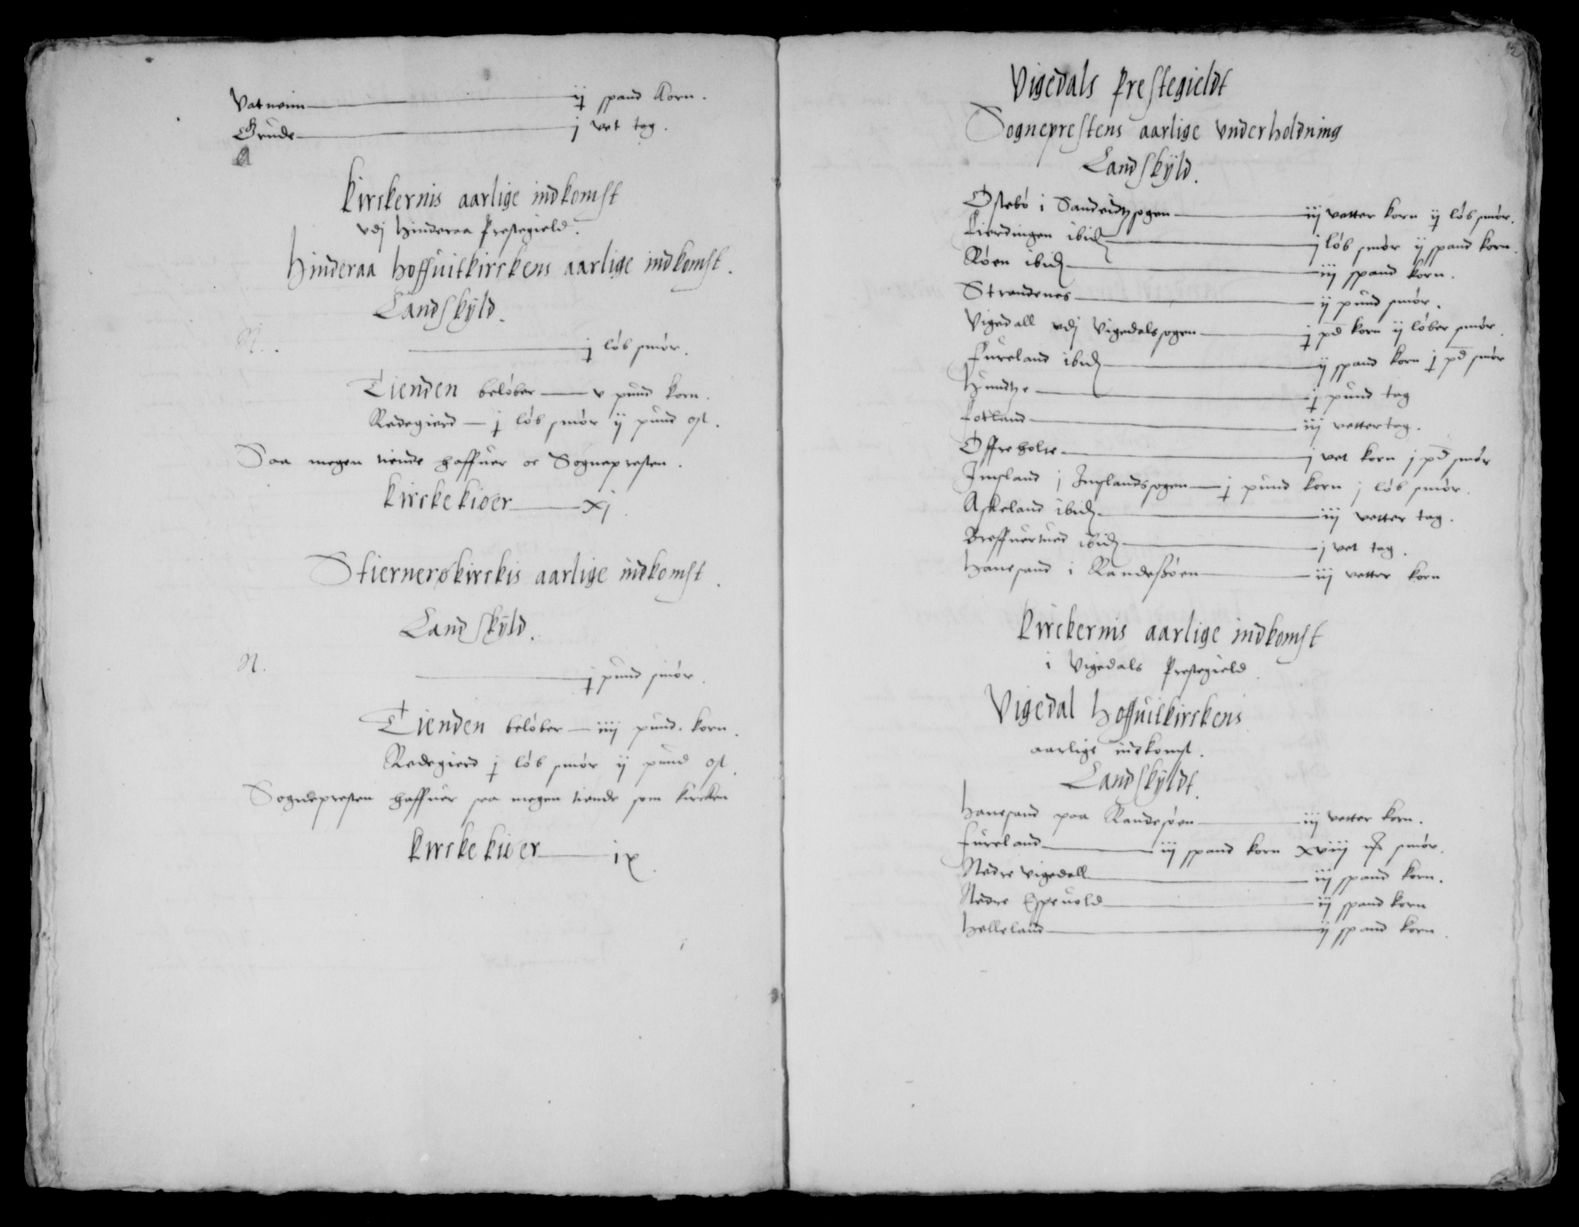 Vatneim ij spand korn.
Grude j vet tag.
Kirckernis aarlige indkomst
vdj Hinderaa Prestegield.
Hinderaa hoffuitkirckens aarlige indkomst.
Landskÿld.
N. j løb smør.
Tienden beløber v pund korn.
Redegierd j løb smør ij pund ost.
Saa megen tiende haffuer oc Sognepresten.
Kirckekiøer xj.
Stiernerøkirckis aarlige indkomst.
Landskÿld.
N. j pund smør.
Tienden beløber iiij pund korn.
Redegierd j løb smør ij pund ost.
Sognepresten haffuer saa megen tiende som kircken
Kirckekiøer ix.
Vigedals Prestegieldt
Sogneprestens aarlige vnderholdning
Landskÿld.
Østebø i Sandeidtzsogen iij vetter korn ij løb smør.
Fierdingen ibid. j løb smør ij spand korn.
Røen ibid. iij spand korn.
Strandenes ij pund smør.
Vigedall vdj Vigedalssogen j pd korn ij løber smør.
Fureland ibid. ij spand korn j pd smør
j pund tag
Løtland iij vetter tag.
Øffreholte j vet korn j pd smør
Imsland j Imslandssogen j pund korn j løb smør.
Askeland ibid. iij vetter tag.
ibid. j vet tag.
Hanesand i Randesøen iij vetter korn
Kirckernis aarlige indkomst
i Vigedals Prestegield
Vigedal Hoffuitkirckens
aarlige indkomst.
Landskÿldt.
Hanesand paa Randesøen iij vetter korn.
Fureland iij spand korn xviij mk smør.
Nedre Vigedall iij spand korn.
Nedre Espeuold ij spand korn
Helleland ij spand korn.